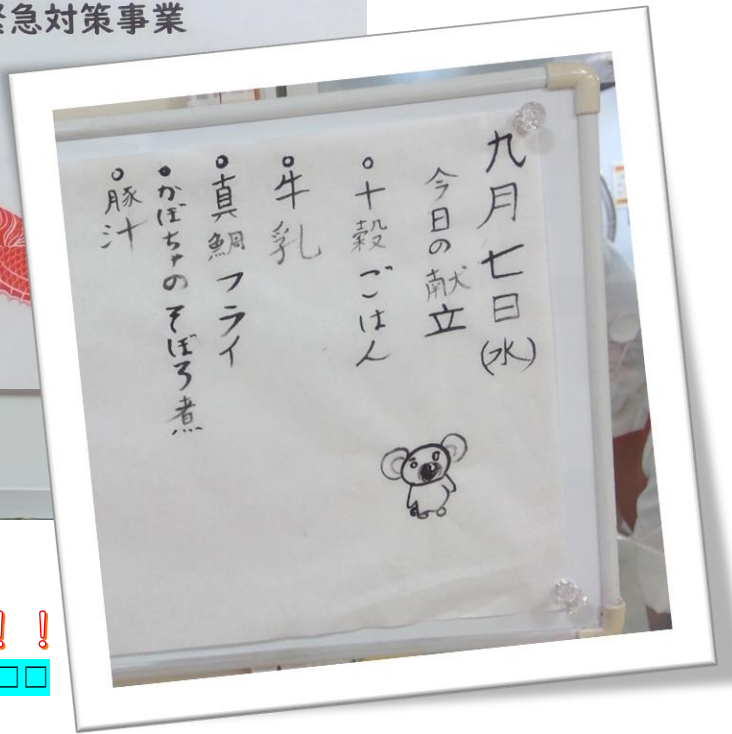 急対策事業
九月七日(水)
今日の献立
○十穀ごはん
○牛乳
○真鯛フライ
○かぼちゃのそぼろ煮
○豚汁
！！
□□